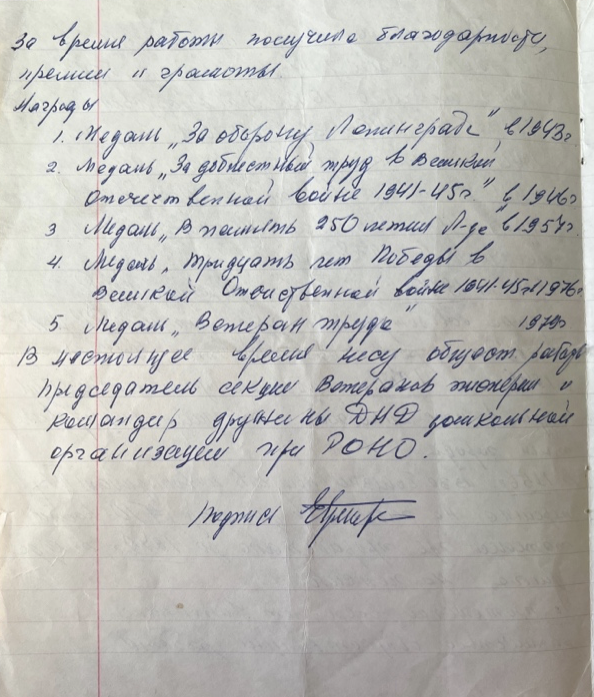 За время работы получила благодарности,
премии и грамоты.
Награды
1. Медаль „За оборону Ленинграда" в 1943г
2. Медаль „За доблестный труд в Великой
Отечественной войне 1941-45г" в 1946г
3 Медаль „В память 250 летия Л-да" в 1957г
4. Медаль „Тридцать лет Победы в
Великой Отечественной войне 1941-45г" 1976г
5 Медаль „Ветеран труда" 1979г
В настоящее время несу обществ. работу
председатель секции Ветеранов пионерии и
командир дружины ДНД дошкольной
организации при РОНО.
Подпись